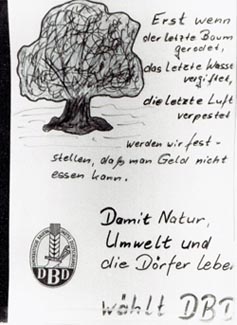 Erst wenn
der letzte Baum
gerodet,
das letzte Wasse
vergiftet,
die letzte Luft
verpestet
werden wir fest-
stellen, daß man Geld nicht
essen kann.
Damit Natur,
Umwelt und
die Dörfer lebe
wählt DBD
DBD